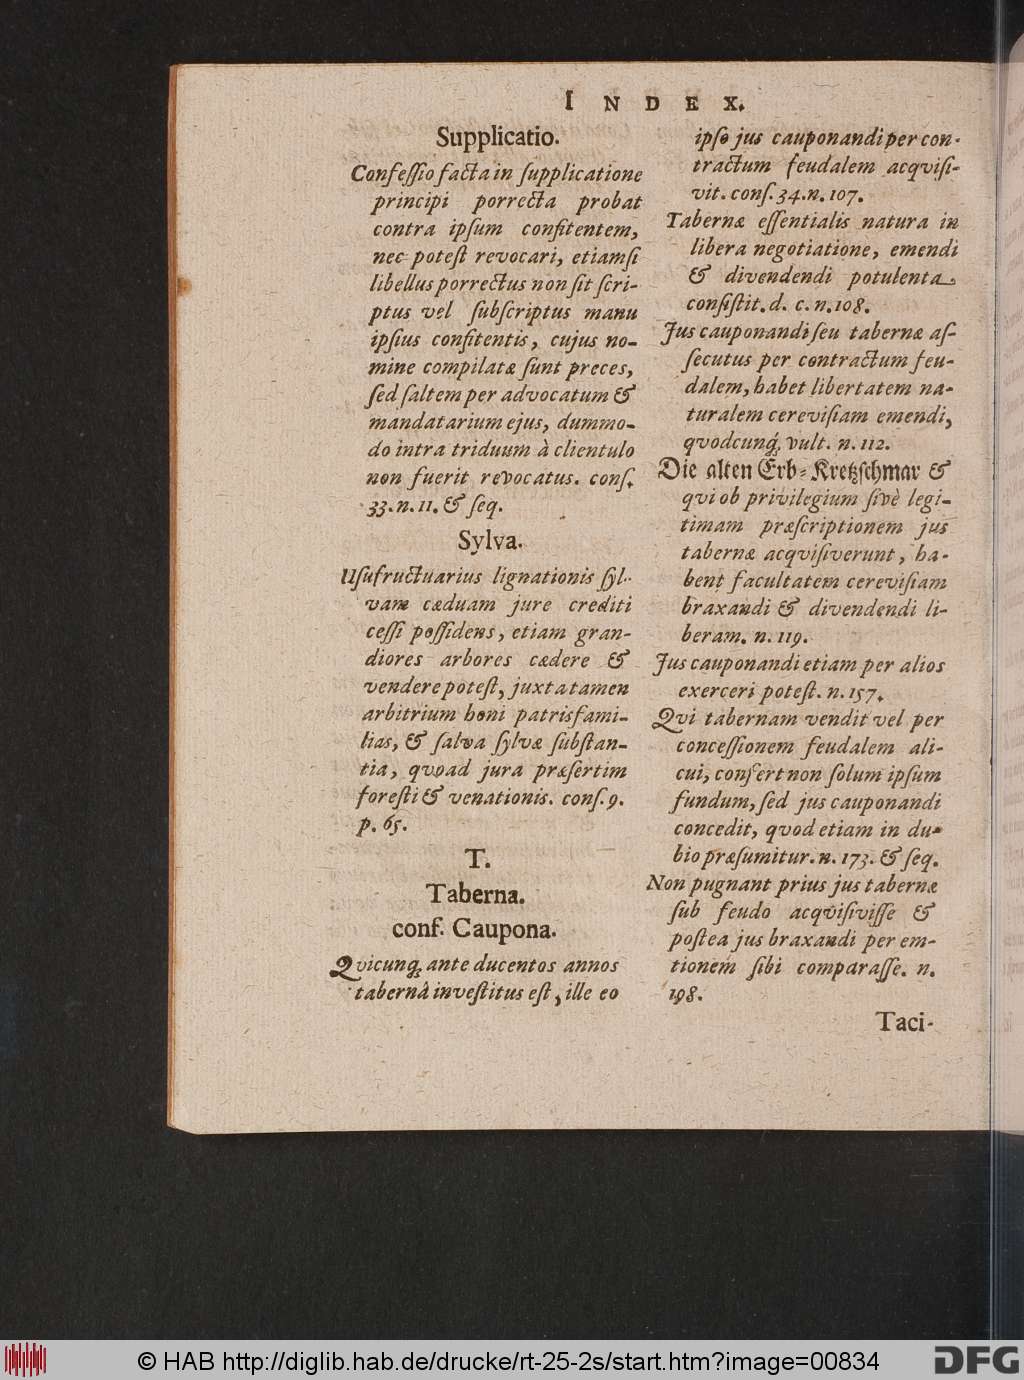 INDEX.
Supplicatio.
Confeſſio facta in ſupplicatione
principi porrecta probat
contra ipſum confitentem,
nec poteſt revocari, etiamſi
libellus porrectus non ſit ſcri-
ptus vel ſubſcriptus manu
ipſius confitentis, cujus no-
mine compilatæ ſunt preces,
ſed ſaltem per advocatum &
mandatarium ejus, dummo-
do intra triduum à clientulo
non fuerit revocatus. conſ.
33. n. 11. & ſeq.
Sylva.
Uſufructuarius lignationis ſyl-
vam cæduam jure crediti
ceſſi poſſidens, etiam gran-
diores arbores cædere &
vendere poteſt, juxta tamen
arbitrium boni patrisfami-
lias, & ſalva ſylvæ ſubſtan-
tia, quoad jura præſertim
foreſti & venationis. conſ. 9.
p. 65.
T.
Taberna.
conf. Caupona.
Qvicunq́; ante ducentos annos
tabernâ inveſtitus eſt, ille eo
ipſo jus cauponandi per con-
tractum feudalem acqviſi-
vit. conſ. 34. n. 107.
Tabernæ eſſentialis natura in
libera negotiatione, emendi
& divendendi potulenta
conſiſtit. d. c. n. 108.
Jus cauponandi ſeu tabernæ aſ-
ſecutus per contractum feu-
dalem, habet libertatem na-
turalem cereviſiam emendi,
qvodcunq́; vult. n. 112.
Die alten Erb-Kretzſchmar &
qvi ob privilegium ſivè legi-
timam præſcriptionem jus
tabernæ acqviſiverunt, ha-
bent facultatem cereviſiam
braxandi & divendendi li-
beram. n. 119.
Jus cauponandi etiam per alios
exerceri poteſt. n. 157.
Qvi tabernam vendit vel per
conceſſionem feudalem ali-
cui, confert non ſolum ipſum
fundum, ſed jus cauponandi
concedit, quod etiam in du-
bio præſumitur. n. 173. & ſeq.
Non pugnant prius jus tabernæ
ſub feudo acqviſiviſſe &
poſtea jus braxandi per em-
tionem ſibi comparaſſe. n.
198.
Taci-
© HAB http://diglib.hab.de/drucke/rt-25-2s/start.htm?image=00834
DFG